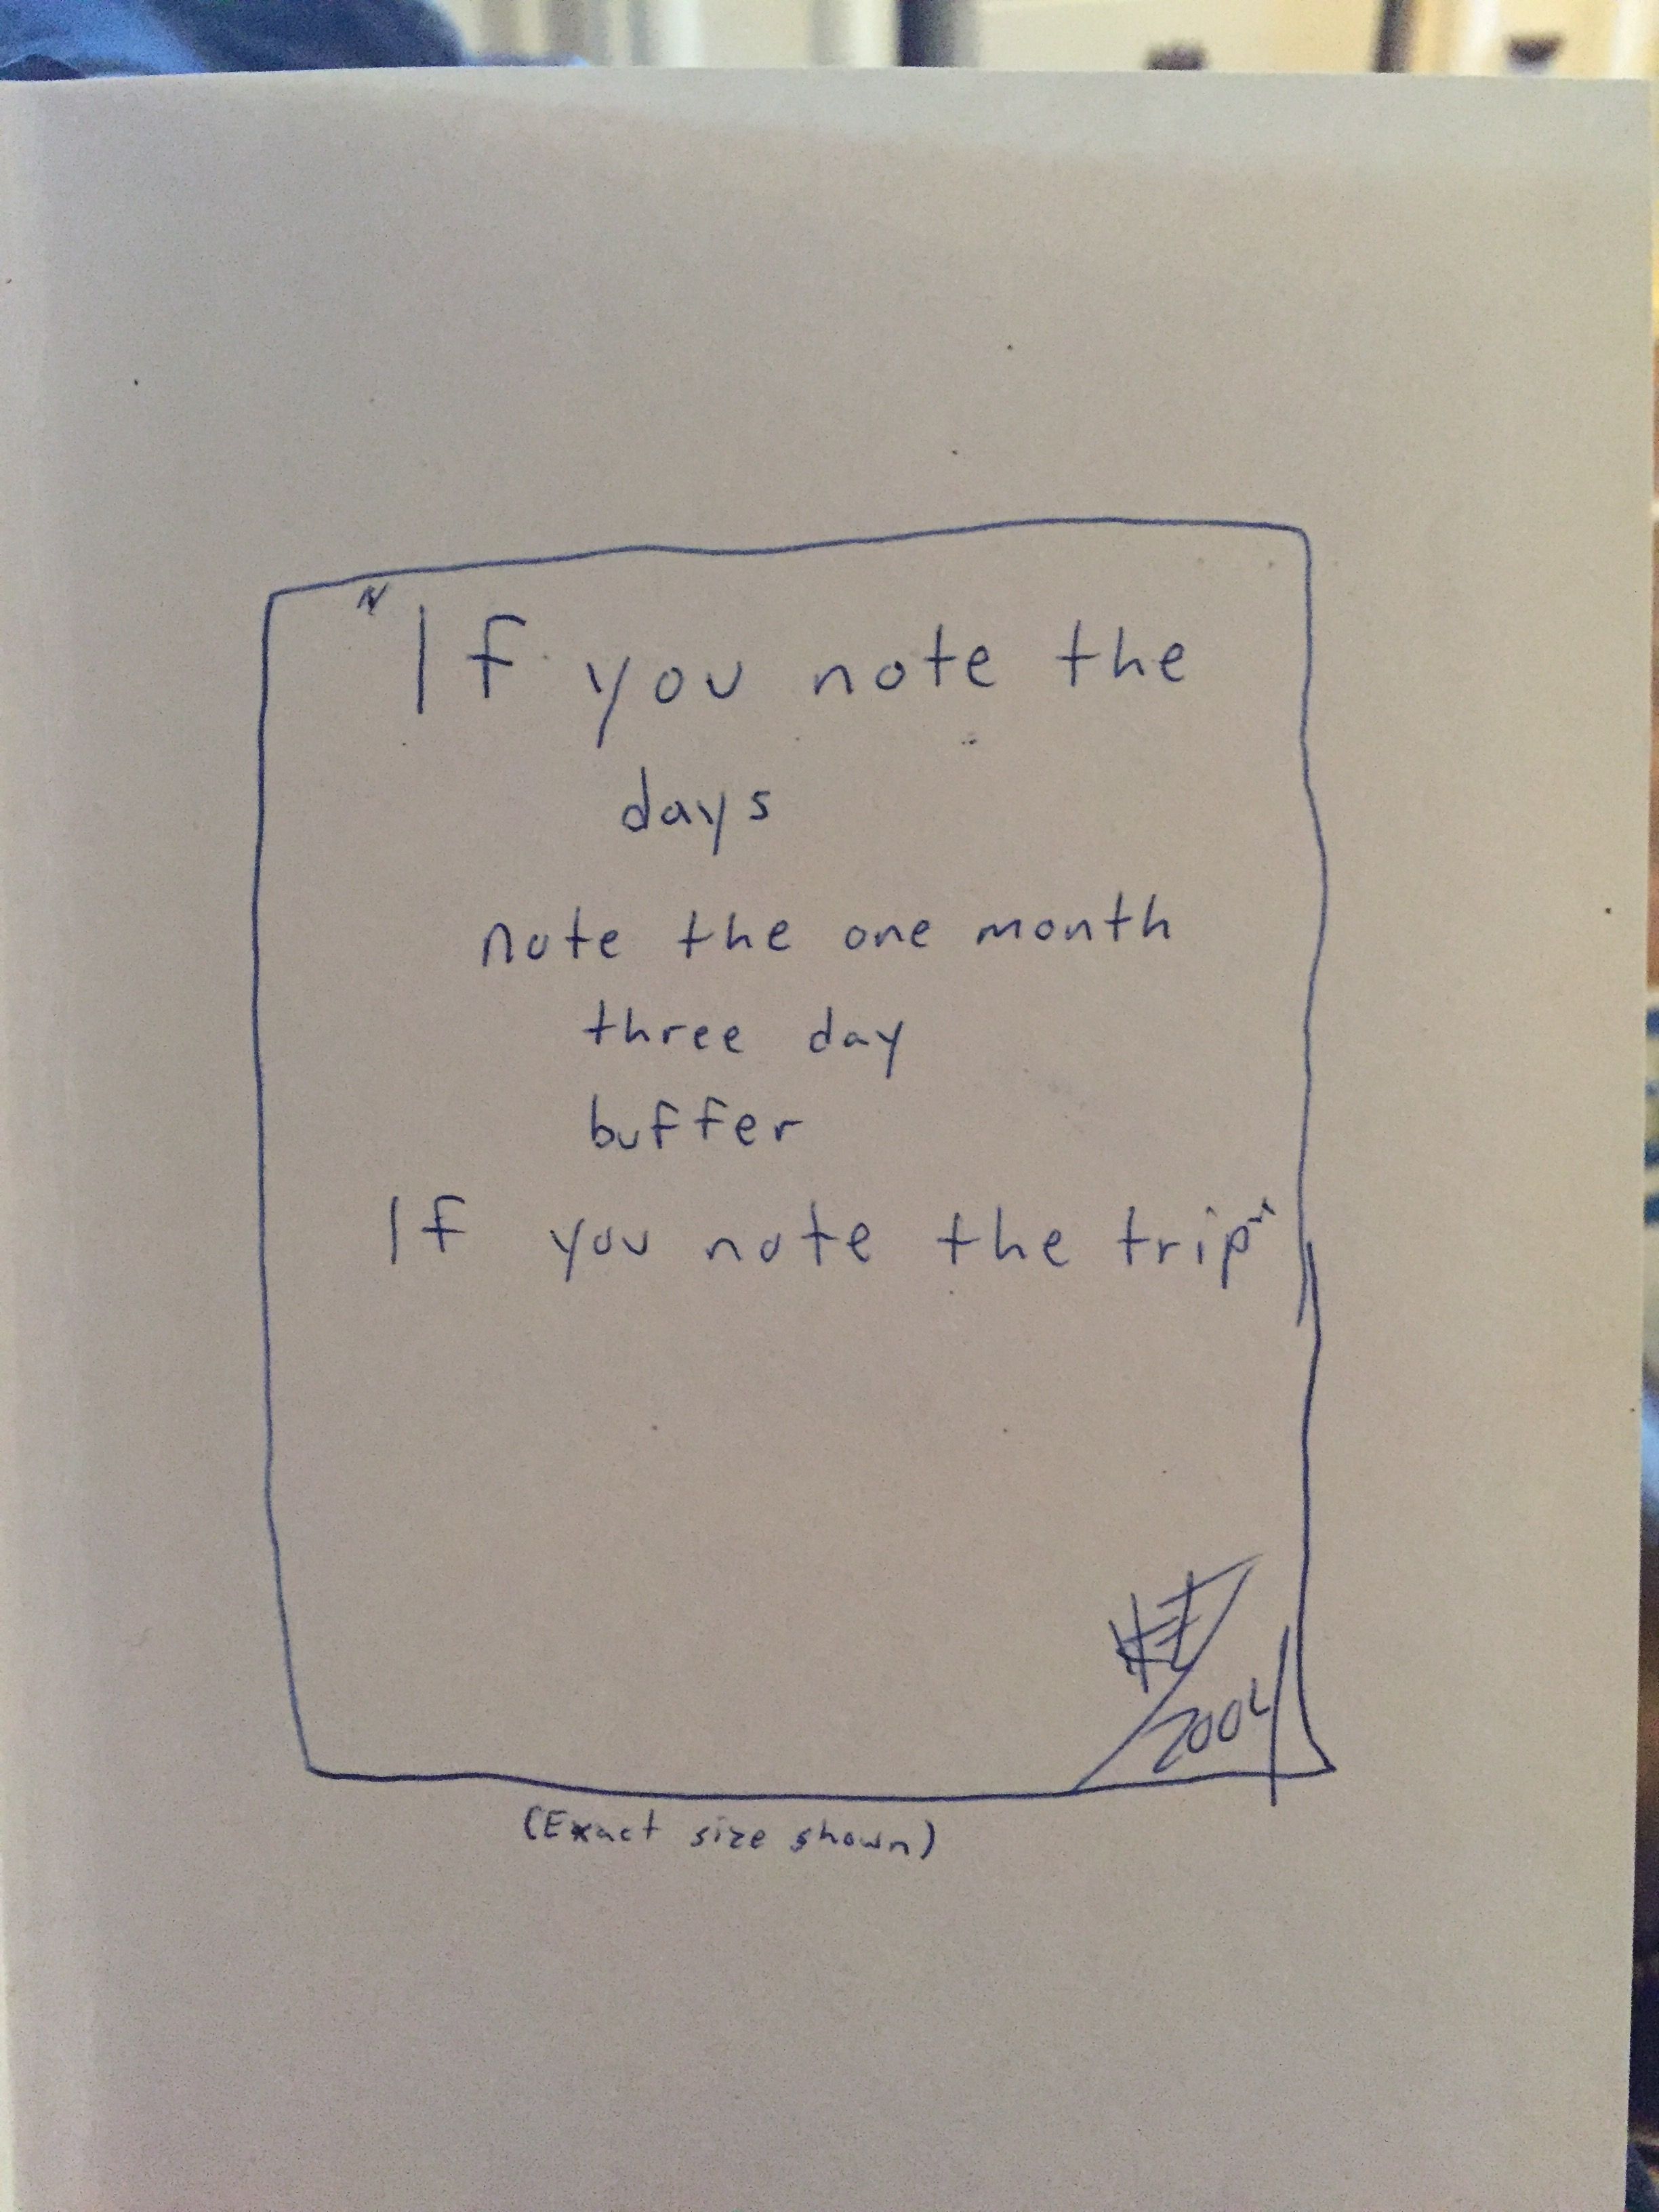 "If you note the
days
note the one month
three day
buffer
If you note the trip"
2004
(Exact size shown)